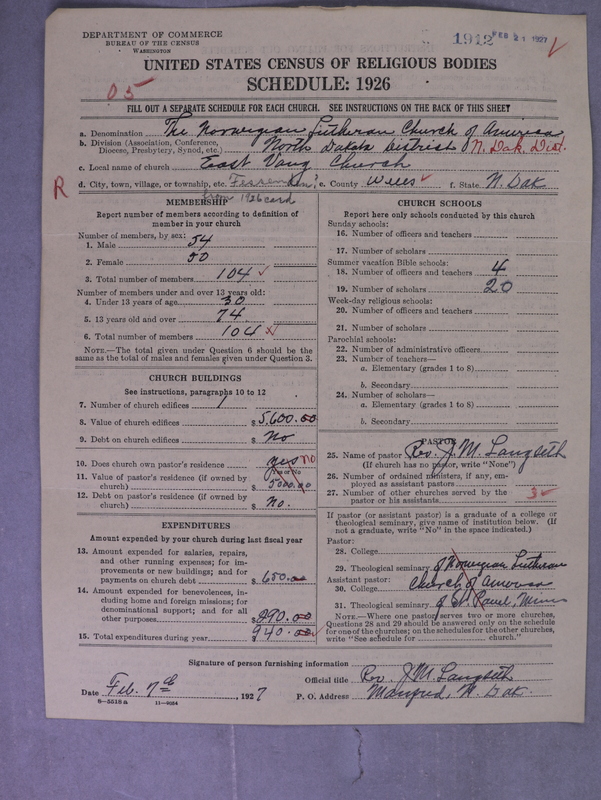 DEPARTMENT OF COMMERCE
BUREAU OF THE CENSUS
WASHINGTON
1912 FEB 21 1927
UNITED STATES CENSUS OF RELIGIOUS BODIES
SCHEDULE: 1926
05
FILL OUT A SEPARATE SCHEDULE FOR EACH CHURCH. SEE INSTRUCTIONS ON THE BACK OF THIS SHEET
a. Denomination The Norwegian Lutheran Church of America
b. Division (Association, Conference, Diocese, Presbytery, Synod, etc.) North Dakota District N. Dak. Dist.
c. Local name of church East Vang Church
R
d. City, town, village, or township, etc. e. County Wells f. State N. Dak
from 1926 card
MEMBERSHIP
Report number of members according to definition of member in your church
Number of members, by sex:
1. Male 54
2. Female 50
3. Total number of members 104
Number of members under and over 13 years old:
4. Under 13 years of age 30
5. 13 years old and over 74
6. Total number of members 104
NOTE.—The total given under Question 6 should be the same as the total of males and females given under Question 3.
CHURCH BUILDINGS
See instructions, paragraphs 10 to 12
7. Number of church edifices 1
8. Value of church edifices $ 5,600.00
9. Debt on church edifices $ No
10. Does church own pastor's residence yes no
Yes or No
11. Value of pastor's residence (if owned by church) $ 5000.00
12. Debt on pastor's residence (if owned by church) $ No.
EXPENDITURES
Amount expended by your church during last fiscal year
13. Amount expended for salaries, repairs, and other running expenses; for improvements or new buildings; and for payments on church debt $ 650.00
14. Amount expended for benevolences, including home and foreign missions; for denominational support; and for all other purposes $ 290.00
15. Total expenditures during year $ 940.00
CHURCH SCHOOLS
Report here only schools conducted by this church
Sunday schools:
16. Number of officers and teachers
17. Number of scholars
Summer vacation Bible schools:
18. Number of officers and teachers 4
19. Number of scholars 20
Week-day religious schools:
20. Number of officers and teachers
21. Number of scholars
Parochial schools:
22. Number of administrative officers
23. Number of teachers—
a. Elementary (grades 1 to 8)
b. Secondary
24. Number of scholars—
a. Elementary (grades 1 to 8)
b. Secondary
PASTOR
25. Name of pastor Rev. J. M. Langseth
(If church has no pastor, write "None")
26. Number of ordained ministers, if any, employed as assistant pastors
27. Number of other churches served by the pastor or his assistants 3
If pastor (or assistant pastor) is a graduate of a college or theological seminary, give name of institution below. (If not a graduate, write "No" in the space indicated.)
Pastor:
28. College
29. Theological seminary of Norwegian Lutheran
Assistant pastor:
30. College Church of America
31. Theological seminary of St. Paul, Minn
NOTE.—Where one pastor serves two or more churches, Questions 28 and 29 should be answered only on the schedule for one of the churches; on the schedules for the other churches, write "See schedule for church."
Signature of person furnishing information
Official title Rev. J. M. Langseth
Date Feb. 7th, 1927
P. O. Address Manfred, N. Dak.
8—5518a 11—9264